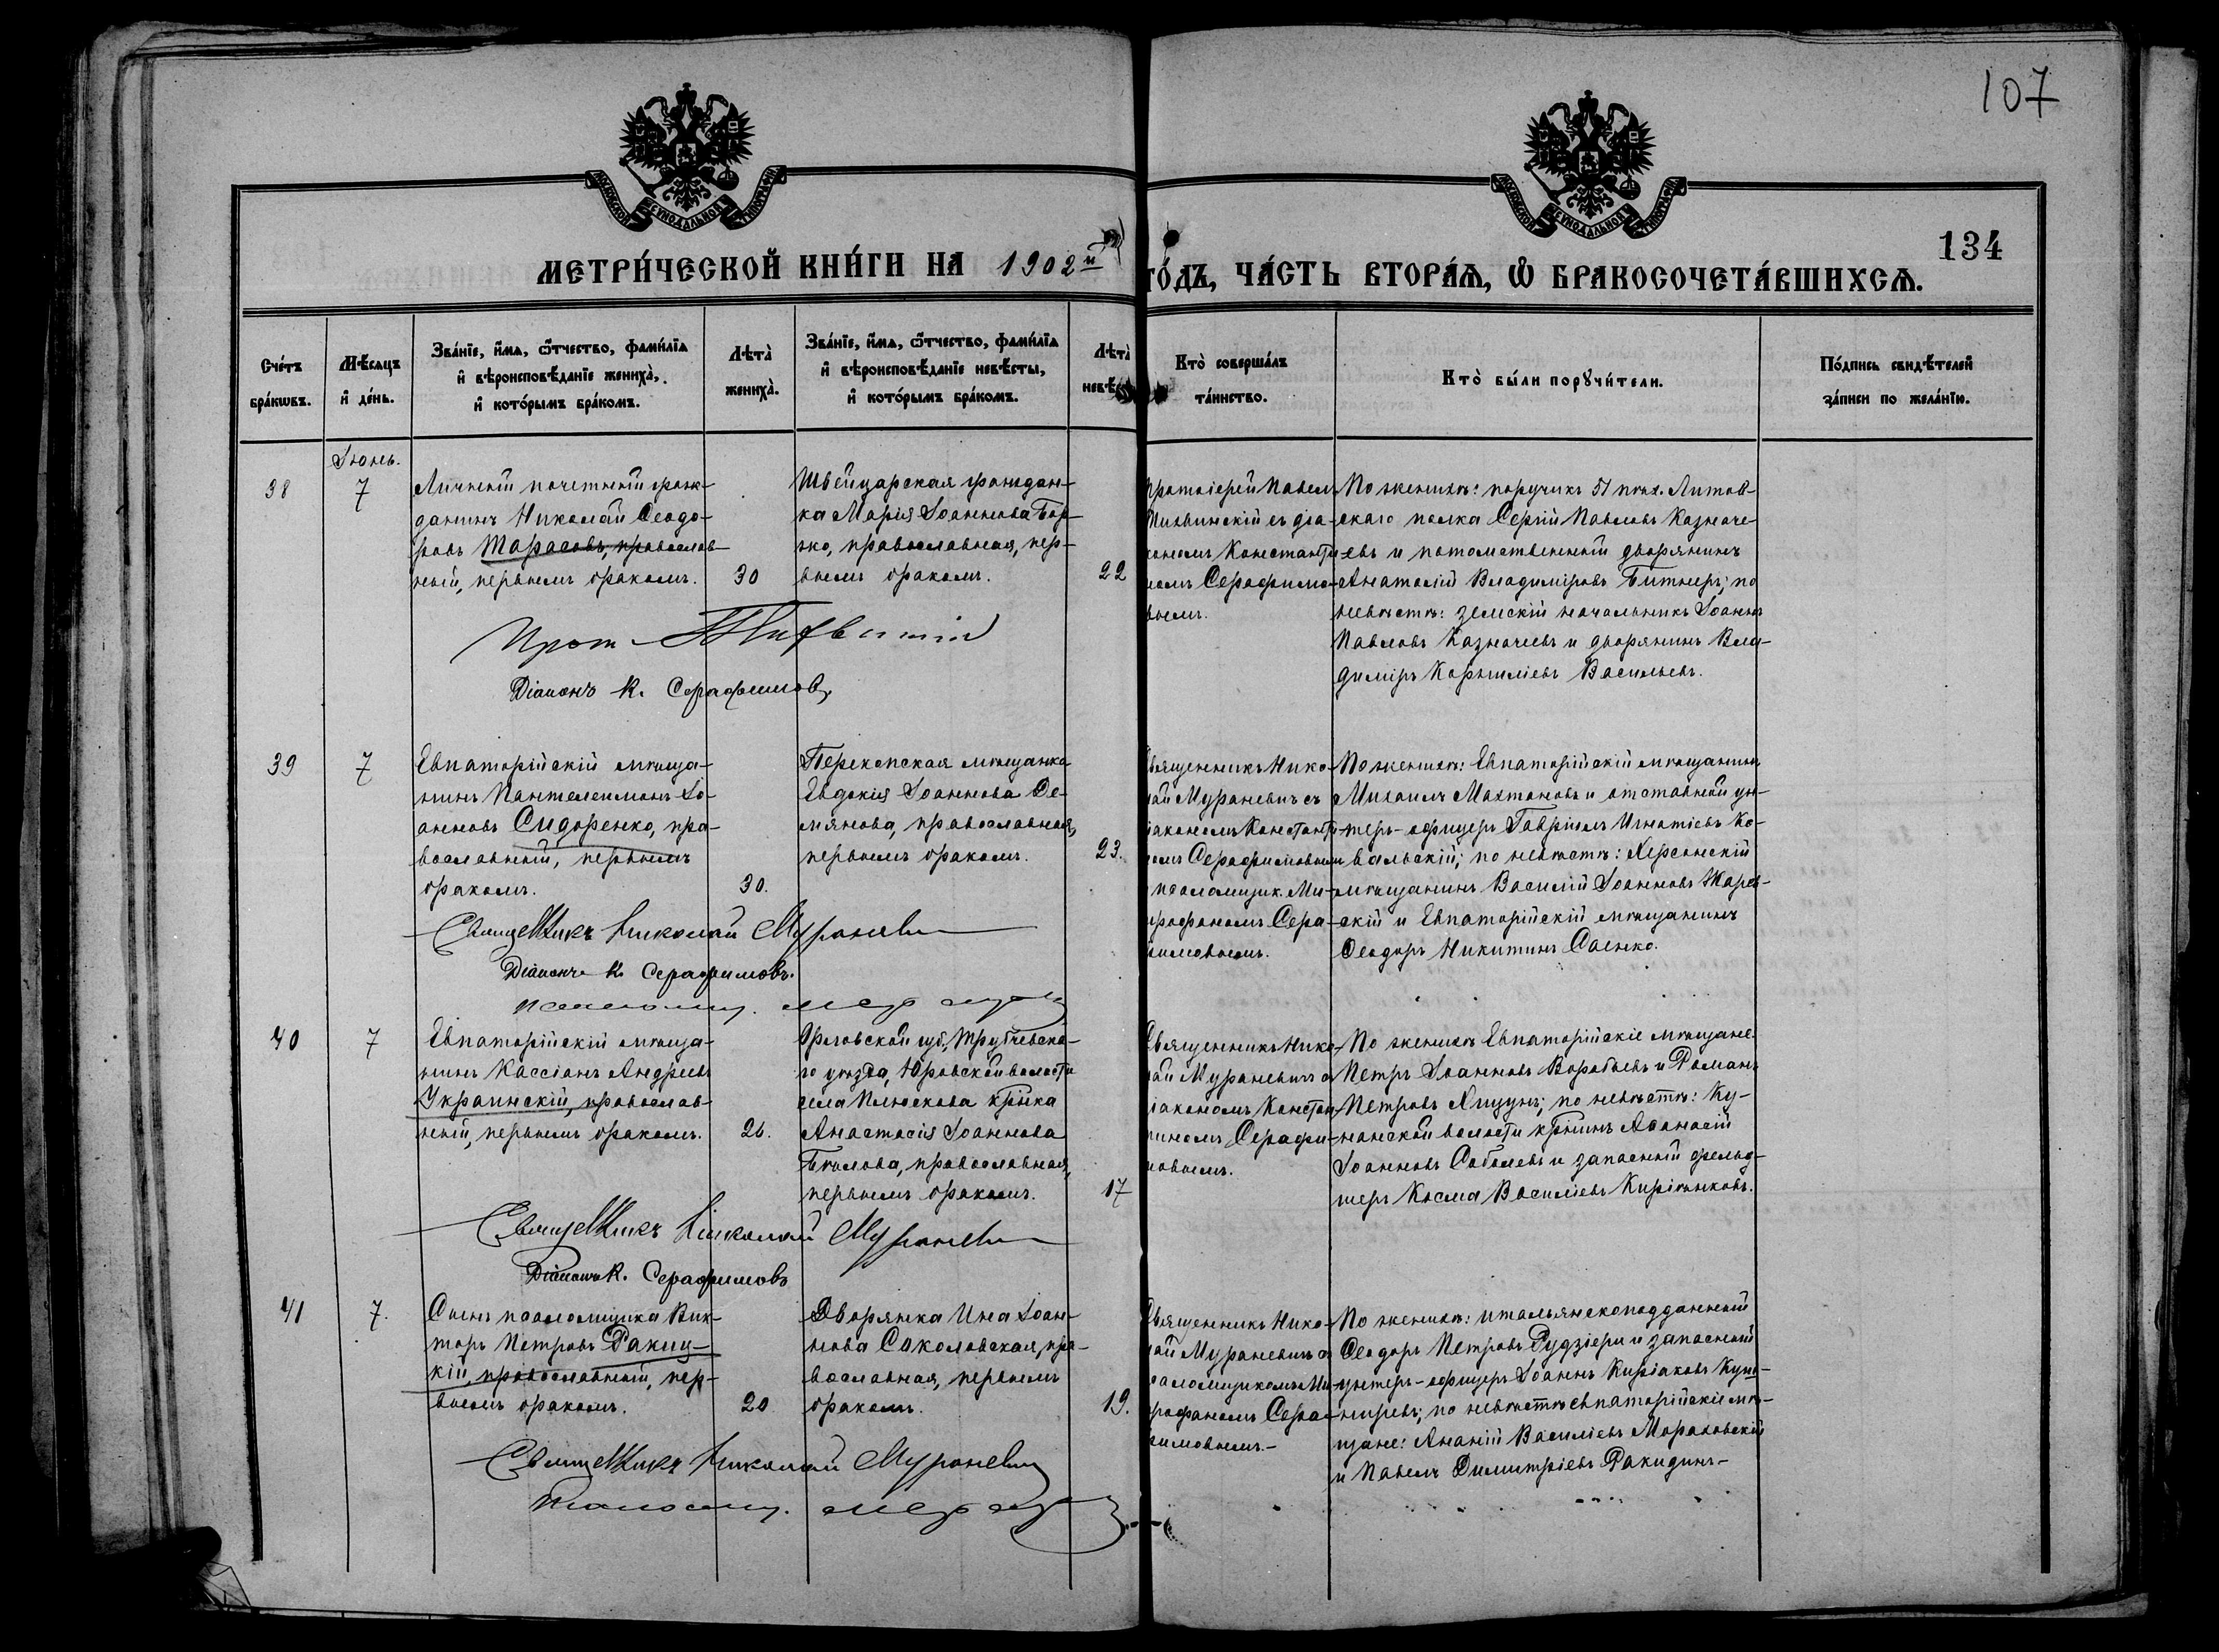 107
134
МЕТРИ́ЧЕСКОЙ КНИ́ГИ НА 1902й
ГО́ДЪ, ЧА́СТЬ ВТОРА́Ѧ, Ѡ҆ БРАКОСОЧЕТА́ВШИХСѦ.
Сче́тъ бра́кѡвъ.
Мѣ́сѧцъ и҆ де́нь.
Зва́нїе, и҆́мѧ, ѻ҆́тчество, фами́лїѧ
и҆ вѣроисповѣ́данїе жениха̀,
и҆ кото́рымъ бра́комъ.
Лѣта̀ жениха̀.
Зва́нїе, и҆́мѧ, ѻ҆́тчество, фами́лїѧ
и҆ вѣроисповѣ́данїе невѣ́сты,
и҆ кото́рымъ бра́комъ.
Лѣта̀
невѣ
Кто̀ соверша́лъ
та́инство.
Кто̀ бы́ли порꙋчи́тели.
По́дпись свидѣ́телей
за́писи по жела́нїю.
Іюнь.
38
7
Личный почетный граж-
данинъ Николай Ѳеодо-
ровъ Тарасовъ, православ-
ный, первымъ бракомъ.
30
Швейцарская граждан-
ка Марія Іоаннова Бор-
ко, православная, пер-
вымъ бракомъ.
22
протоіерей Павелъ
Тихвинскій съ діа-
кономъ Константи-
номъ Серафимо-
вымъ.
По женихѣ: поручикъ 51 пѣх. Литов-
скаго полка Сергій Павловъ Казначе-
евъ и потомственный дворянинъ
Анатолій Владиміровъ Битнеръ; по
невѣстѣ: земскій начальникъ Іоаннъ
Павловъ Казначеевъ и дворянинъ Вла-
диміръ Корниліевъ Васильевъ.
Прот. Тихвинскій
Діаконъ К. Серафимовъ
39
7
Евпаторійскій мѣща-
нинъ Пантелеимонъ Іо-
анновъ Сидоренко, пра-
вославный, первымъ
бракомъ.
30.
Перекопская мѣщанка
Евдокія Іоаннова Де-
мянова, православная,
первымъ бракомъ.
23.
Священникъ Нико-
лай Мураневичъ съ
діакономъ Константи-
номъ Серафимовымъ
псаломщик. Ми-
трофаномъ Сера-
фимовымъ.
По женихѣ: Евпаторійскій мѣщанинъ
Михаилъ Махтановъ и отставной ун-
теръ-офицеръ Гавріилъ Игнатіевъ Ко-
вальскій; по невѣстѣ: Херсонскій
мѣщанинъ Василій Іоанновъ Жаров-
скій и Евпаторійскій мѣщанинъ
Ѳеодоръ Никитинъ Саенко.
Священникъ Николай Мураневич
Діаконъ К. Серафимовъ.
псаломщ.
40
7
Евпаторійскій мѣща-
нинъ Кассіанъ Андреевъ
Украинскій, православ-
ный, первымъ бракомъ.
26.
Орловской губ., Трубчевска-
го уѣзда, Юровской волости
села Плюскова кр҃нка
Анастасія Іоаннова
Бѣлова, православная,
первымъ бракомъ.
17
Священникъ Нико-
лай Мураневичъ съ
діакономъ Констан-
тиномъ Серафи-
мовымъ.
По женихѣ Евпаторійскіе мѣщане:
Петръ Іоанновъ Воробьевъ и Романъ
Петровъ Яцунъ; по невѣстѣ: Ку-
нанской волости кр҃нинъ Аѳанасій
Іоанновъ Соболевъ и запасный фельд-
шеръ Косма Василіевъ
Священникъ Николай Мураневич
Діаконъ К. Серафимовъ
41
7.
Сынъ псаломщика Вик-
торъ Петровъ Ракиц-
кій, православный, пер-
вымъ бракомъ.
20
Дворянка Ина Іоан-
нова Соколовская, пра-
вославная, первымъ
бракомъ.
19.
Священникъ Нико-
лай Мураневичъ съ
псаломщикомъ Ми-
трофаномъ Сера-
фимовымъ.-
По женихѣ: итальянскоподданный
Ѳеодоръ Петровъ Рудзіери и запасный
унтеръ-офицеръ Іоаннъ Киріаковъ Куш-
наревъ; по невѣстѣ евпаторійскіе мѣ-
щане: Ананій Василіевъ Мораховскій
и Павелъ Димитріевъ Ракидинъ-
Священникъ Николай Мураневич
псаломщ.